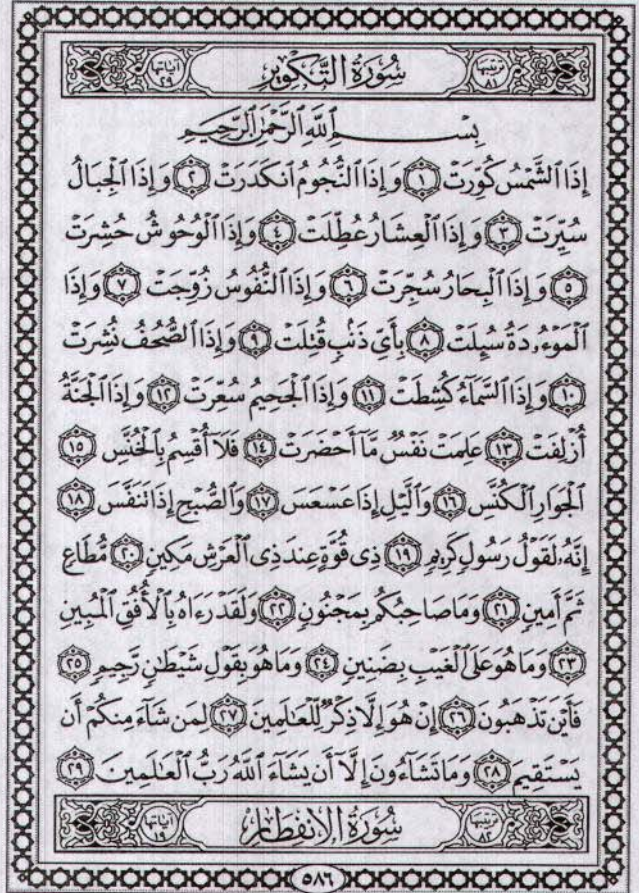 ترتيبها ٨١ سُورَةُ التَّكْوِيرِ آياتها ٢٩
بِسْمِ ٱللَّهِ ٱلرَّحْمَٰنِ ٱلرَّحِيمِ
إِذَا ٱلشَّمْسُ كُوِّرَتْ ١ وَإِذَا ٱلنُّجُومُ ٱنكَدَرَتْ ٢ وَإِذَا ٱلْجِبَالُ
سُيِّرَتْ ٣ وَإِذَا ٱلْعِشَارُ عُطِّلَتْ ٤ وَإِذَا ٱلْوُحُوشُ حُشِرَتْ
٥ وَإِذَا ٱلْبِحَارُ سُجِّرَتْ ٦ وَإِذَا ٱلنُّفُوسُ زُوِّجَتْ ٧ وَإِذَا
ٱلْمَوْءُۥدَةُ سُئِلَتْ ٨ بِأَيِّ ذَنۢبٍ قُتِلَتْ ٩ وَإِذَا ٱلصُّحُفُ نُشِرَتْ
١٠ وَإِذَا ٱلسَّمَآءُ كُشِطَتْ ١١ وَإِذَا ٱلْجَحِيمُ سُعِّرَتْ ١٢ وَإِذَا ٱلْجَنَّةُ
أُزْلِفَتْ ١٣ عَلِمَتْ نَفْسٌ مَّآ أَحْضَرَتْ ١٤ فَلَآ أُقْسِمُ بِٱلْخُنَّسِ ١٥
ٱلْجَوَارِ ٱلْكُنَّسِ ١٦ وَٱلَّيْلِ إِذَا عَسْعَسَ ١٧ وَٱلصُّبْحِ إِذَا تَنَفَّسَ ١٨
إِنَّهُۥ لَقَوْلُ رَسُولٍ كَرِيمٍ ١٩ ذِى قُوَّةٍ عِندَ ذِى ٱلْعَرْشِ مَكِينٍ ٢٠ مُّطَاعٍ
ثَمَّ أَمِينٍ ٢١ وَمَا صَاحِبُكُم بِمَجْنُونٍ ٢٢ وَلَقَدْ رَءَاهُ بِٱلْأُفُقِ ٱلْمُبِينِ
٢٣ وَمَا هُوَ عَلَى ٱلْغَيْبِ بِضَنِينٍ ٢٤ وَمَا هُوَ بِقَوْلِ شَيْطَٰنٍ رَّجِيمٍ ٢٥
فَأَيْنَ تَذْهَبُونَ ٢٦ إِنْ هُوَ إِلَّا ذِكْرٌ لِّلْعَٰلَمِينَ ٢٧ لِمَن شَآءَ مِنكُمْ أَن
يَسْتَقِيمَ ٢٨ وَمَا تَشَآءُونَ إِلَّآ أَن يَشَآءَ ٱللَّهُ رَبُّ ٱلْعَٰلَمِينَ ٢٩
ترتيبها ٨٢ سُورَةُ الِانْفِطَارِ آياتها ١٩
٥٨٦